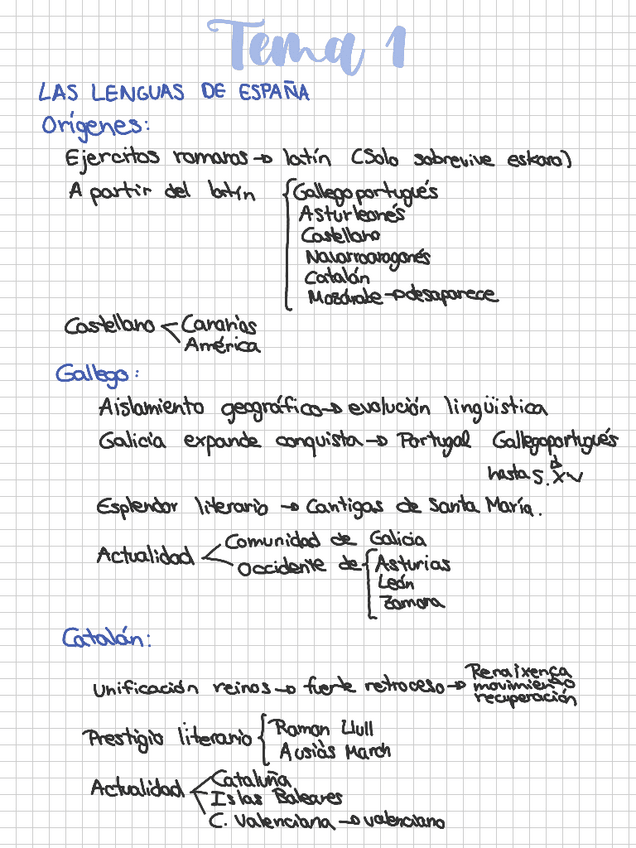 Tema 1
LAS LENGUAS DE ESPAÑA
Orígenes:
Ejercitos romanos → latín (Solo sobrevive eskara)
A partir del latín { Gallegoportugués
Asturleonés
Castellano
Navarroaragonés
Catalán
Mozárabe → desaparece
Castellano < Canarias
América
Gallego:
Aislamiento geográfico → evolución lingüística
Galicia expande conquista → Portugal Gallegoportugués
hasta S. XV
Esplendor literario → Cantigas de Santa María.
Actualidad < Comunidad de Galicia
Occidente de [ Asturias
León
Zamora
Catalán:
Unificación reinos → fuerte retroceso → Renaixença
movimiento
recuperación
Prestigio literario { Ramon Llull
Ausiàs March
Actualidad < Cataluña
Islas Baleares
C. Valenciana → valenciano